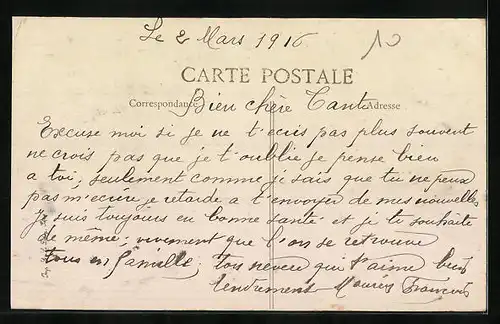 Le 2 Mars 1916
10
CARTE POSTALE
Correspondance
Adresse
Bien chère Tante
Excuse moi si je ne t'ecris pas plus souvent
ne crois pas que je t'oublie je pense bien
a toi; seulement comme je sais que tu ne peux
pas m'ecrire je retarde a t'envoyer de mes nouvelles
Je suis toujours en bonne santé et je te souhaite
de même; vivement que l'on se retrouve
tous en famille. ton neveu qui t'aime bien
tendrement Maurice François